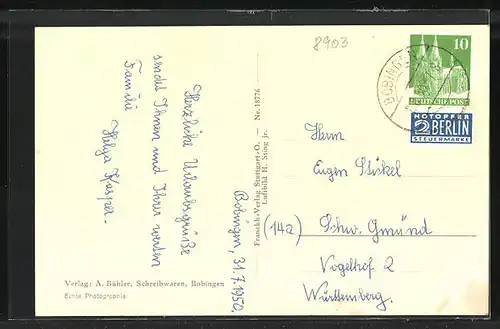 8903
Bobingen, 31.7.1950.
Herzliche Urlaubsgrüße
sendet Ihnen und Ihrer werten
Familie
Helga Kasper.
Verlag: A. Bühler, Schreibwaren, Bobingen
Echte Photographie
Franckh-Verlag Stuttgart-O. — Nr. 18776
Luftbild H. Sting jr.
BOBINGEN
10
DEUTSCHE POST
NOTOPFER
2 BERLIN
STEUERMARKE
Herrn
Eugen Stickel
(14a) Schw. Gmünd
Vogelhof 2
Württemberg.